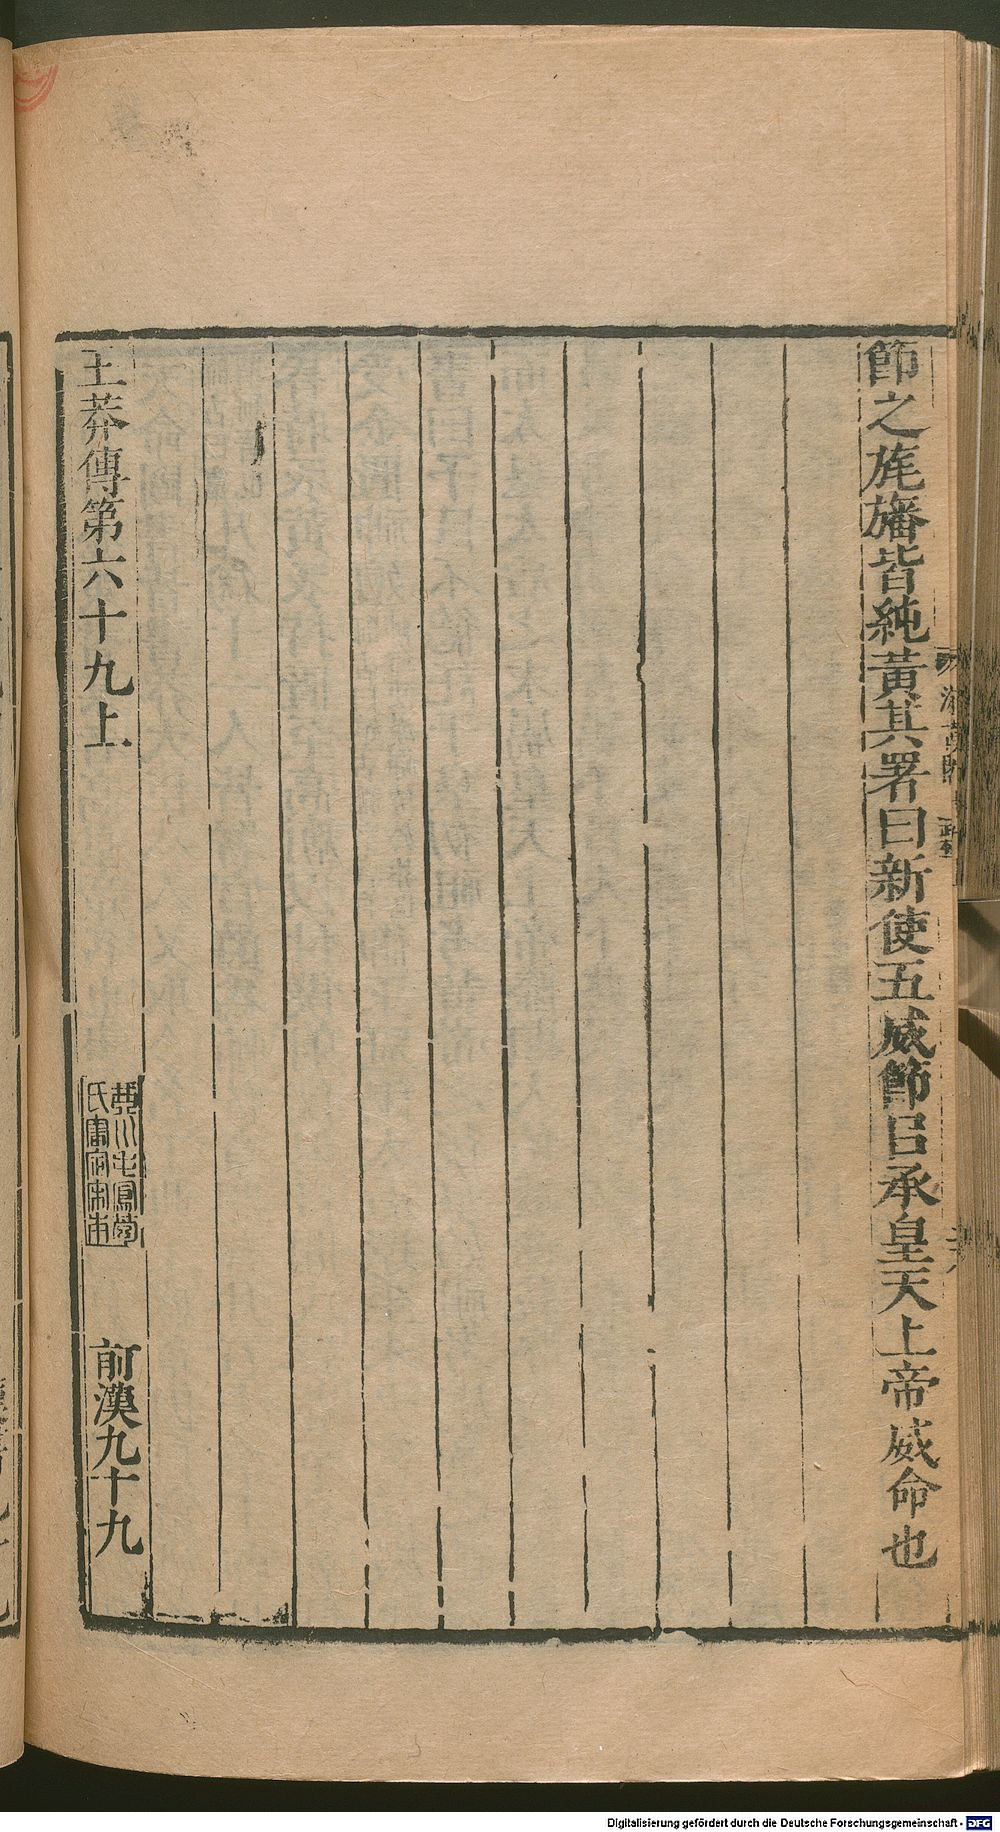 節之旄旛皆純黃其署曰新使五威節㠯承皇天上帝威命也
王莽傳第六十九上
前漢九十九
Digitalisierung gefördert durch die Deutsche Forschungsgemeinschaft - DFG